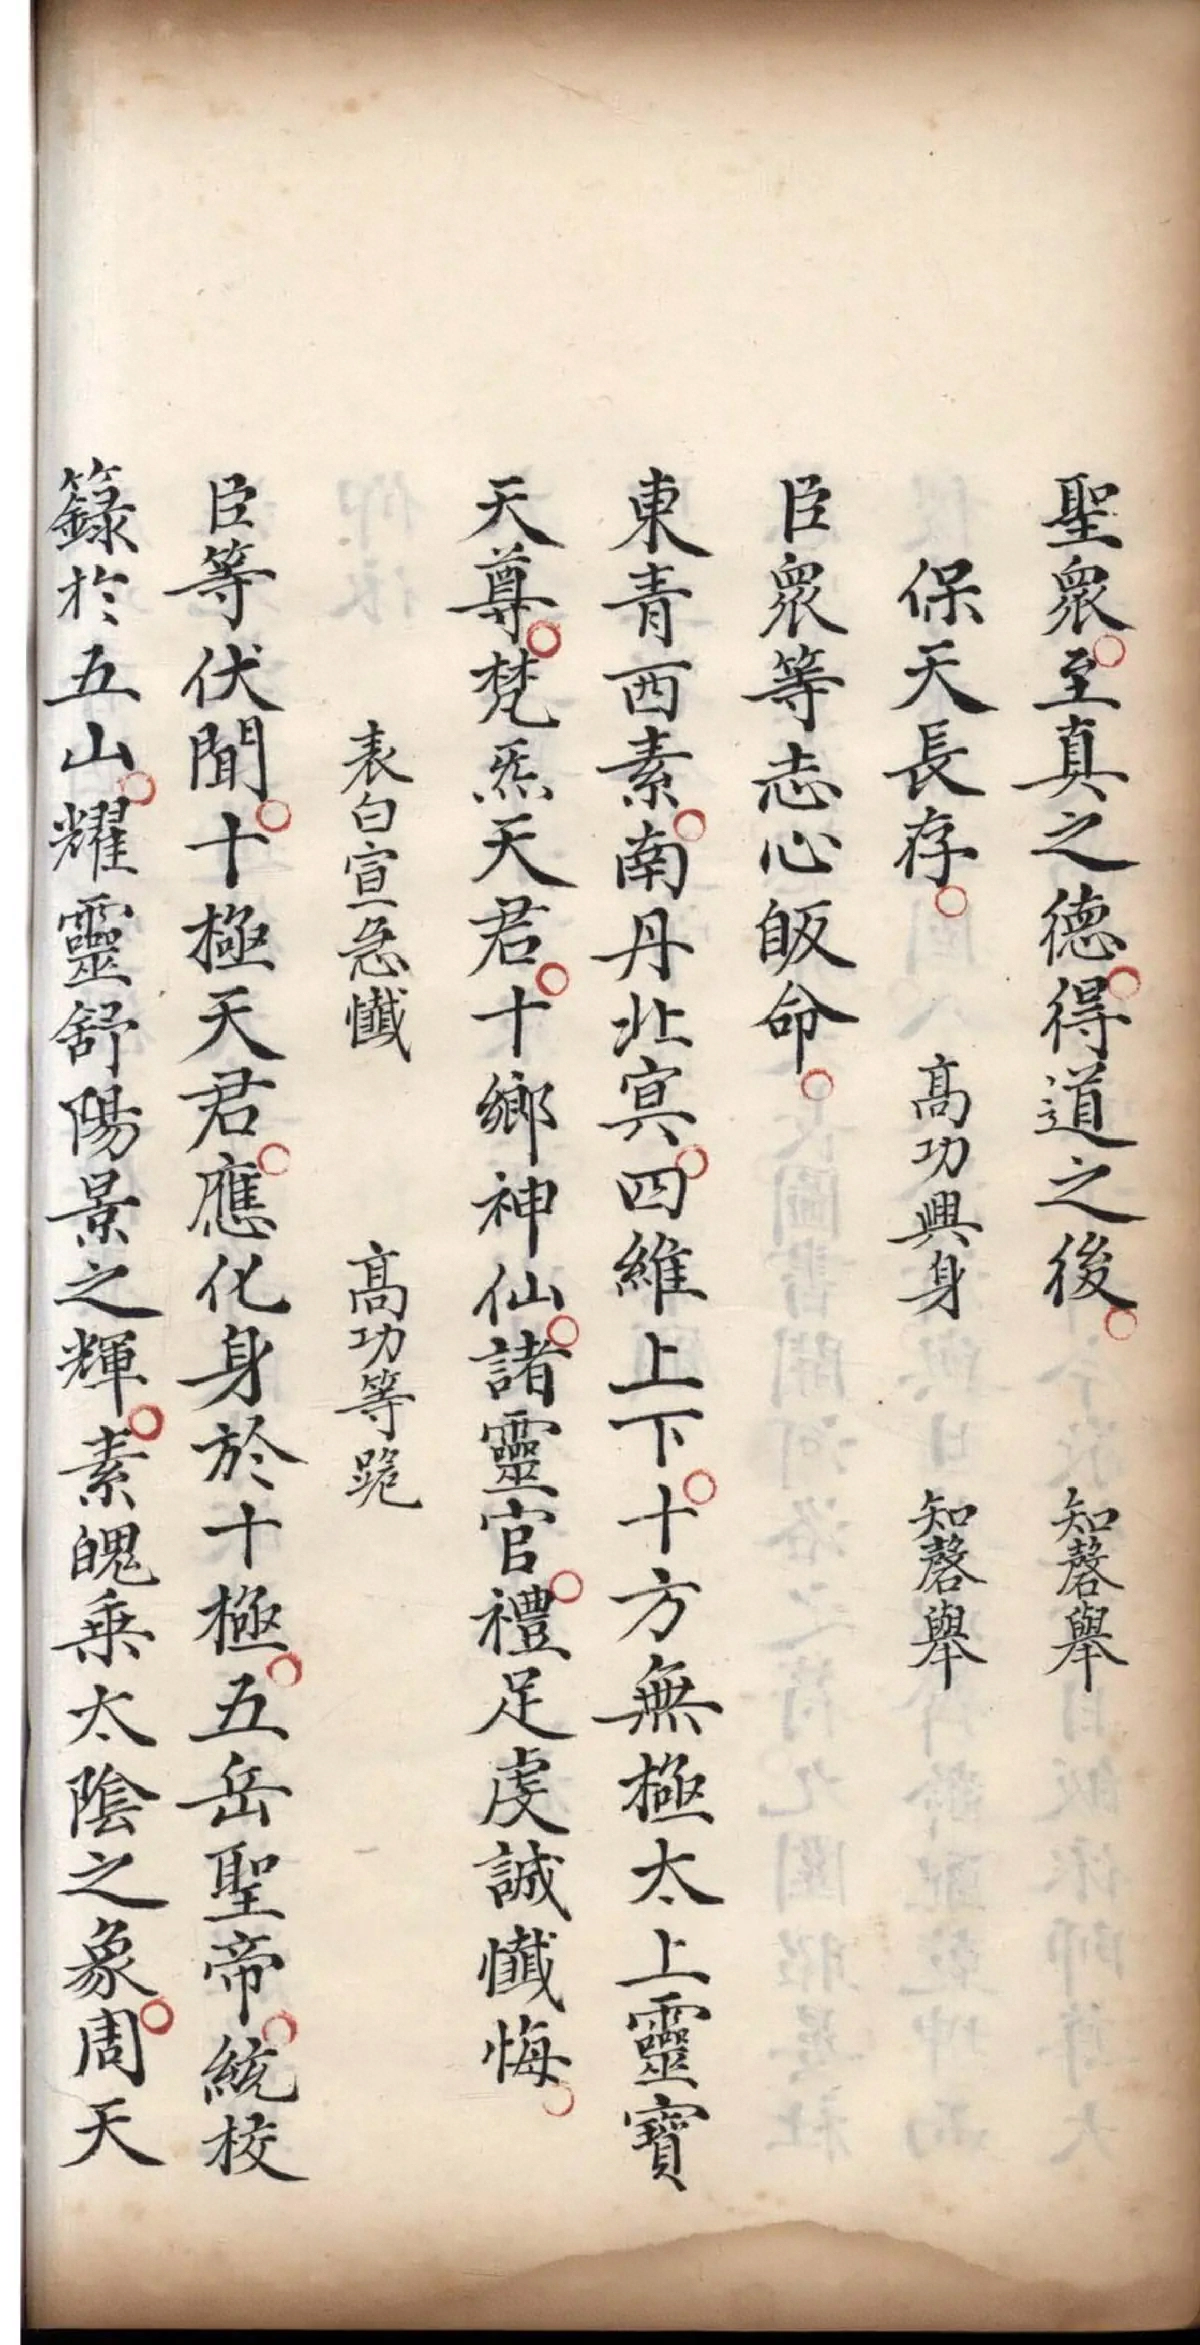 聖衆○至真之德○得道之後○　知磬舉
保天長存○　高功興身　知磬舉
臣衆等志心皈命○
東青西素○南丹北冥○四維上下○十方無極太上靈寶
天尊○梵炁天君○十鄉神仙○諸靈官○禮足虔誠懺悔○
表白宣急懺　高功等跪
臣等伏聞○十極天君○應化身於十極○五岳聖帝○統校
籙於五山○耀靈舒陽景之輝○素魄乗太陰之象○周天